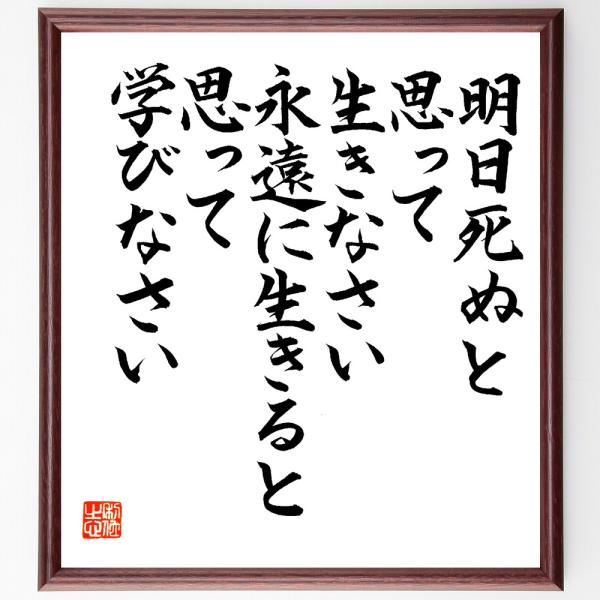 明日死ぬと
思って
生きなさい
永遠に生きると
思って
学びなさい